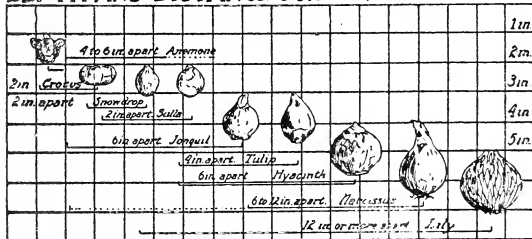 1in.
4 to 6in. apart Anemone
2in.
2in Crocus
3in
2in. apart Snowdrop
2in. apart Scilla
4in
5in.
6in apart Jonquil
4in. apart Tulip
6in. apart Hyacinth
6 to 12in. apart Narcissus
12 in. or more apart Lily